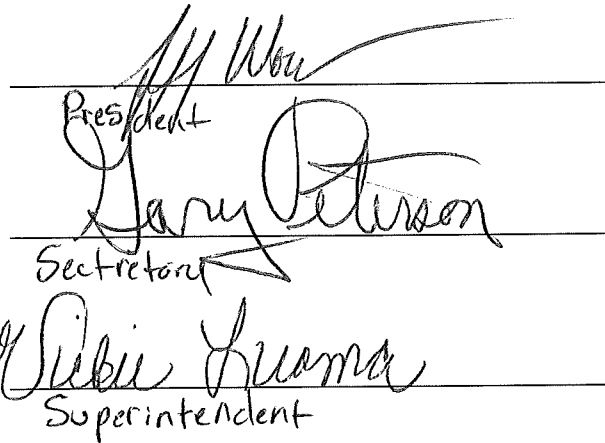 President
Gary Peterson
Sectretory
Vickie Luoma
Superintendent